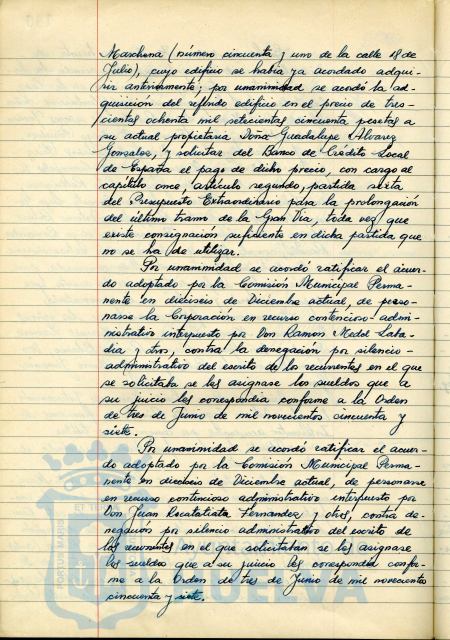 Marchena (número cincuenta y uno de la calle 18 de
Julio), cuyo edificio se había ya acordado adqui-
rir anteriormente; por unanimidad se acordó la ad-
quisición del referido edificio en el precio de tres-
cientas ochenta mil setecientas cincuenta pesetas a
su actual propietaria Doña Guadalupe Alvarez
Gonzalez, y solicitar del Banco de Crédito Local
de España el pago de dicho precio, con cargo al
capítulo once, artículo segundo, partida sexta
del Presupuesto Extraordinario para la prolongación
del último tramo de la Gran Vía, toda vez que
existe consignación suficiente en dicha partida que
no se ha de utilizar.
Por unanimidad se acordó ratificar el acuer-
do adoptado por la Comisión Municipal Perma-
nente en dieciseis de Diciembre actual, de perso-
narse la Corporación en recurso contencioso-admi-
nistrativo interpuesto por Don Ramón
y otros, contra la denegación por silencio-
administrativo del escrito de los recurrentes en el que
se solicitaba se les asignase los sueldos que a
su juicio les correspondía conforme a la Orden
de tres de Junio de mil novecientos cincuenta y
siete.
Por unanimidad se acordó ratificar el acuer-
do adoptado por la Comisión Municipal Perma-
nente en dieciseis de Diciembre actual, de personarse
en recurso contencioso administrativo interpuesto por
Don Juan Fernandez y otros, contra de-
negación por silencio administrativo del escrito de
los recurrentes en el que solicitaban se les asignase
los sueldos que a su juicio les correspondía confor-
me a la Orden de tres de Junio de mil novecientos
cincuenta y siete.
HUELVA